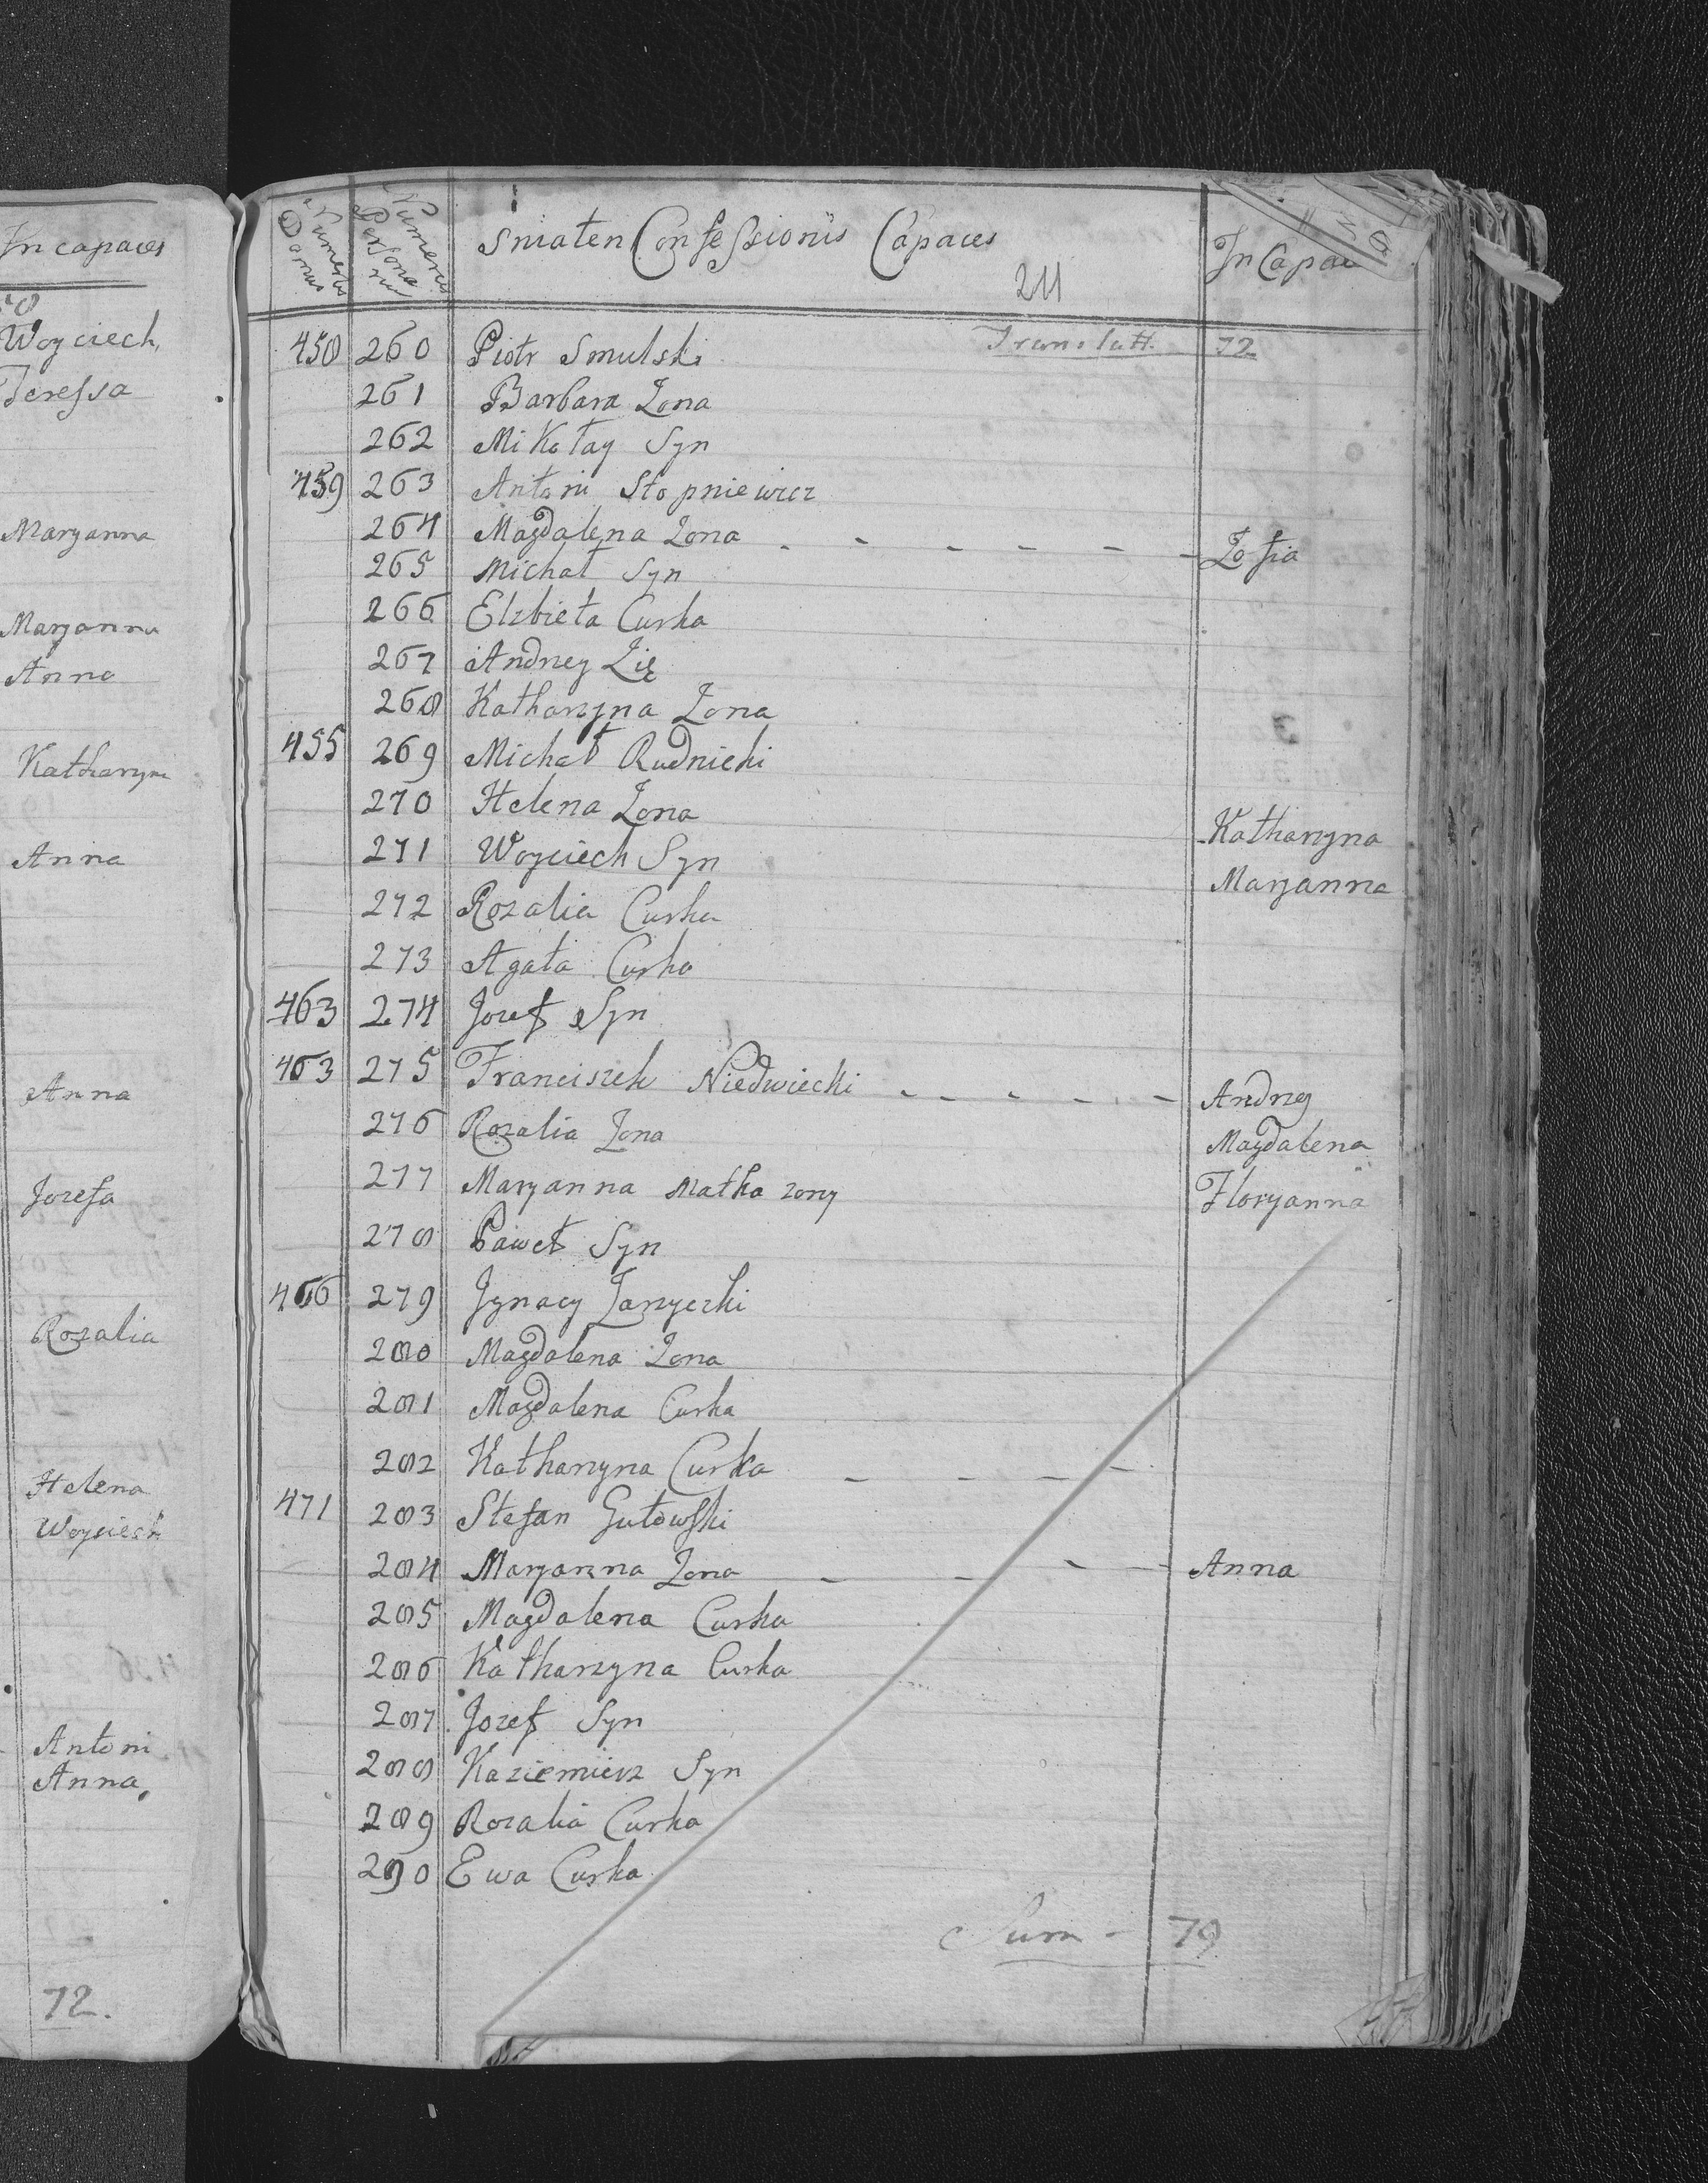 In capaces
Woyciech
Teressa
Maryanna
Maryanna
Anna
Katharzyna
Anna
Anna
Jozefa
Rozalia
Helena
Woyciech
Antoni
Anna
72.
Numerus Domus
Numerus Persona rum
Sniaten Confessionis Capaces
211
In Capac
Translatt. 72
458 260 Piotr Smulski
261 Barbara Zona
262 Mikołay Syn
459 263 Antoni Stopniewicz
264 Magdalena Zona - - - - - - Zofia
265 Michał Syn
266 Elzbieta Curka
267 Andrzey Zię
268 Katharzyna Zona
455 269 Michał Rudnicki
270 Helena Zona Katharzyna
271 Woyciech Syn Maryanna
272 Rozalia Curka
273 Agata Curka
463 274 Jozef Syn
463 275 Franciszek Niedwiecki - - - - - - Andrzy
276 Rozalia Zona Magdalena
277 Maryanna Matka zony Floryanna
278 Paweł Syn
466 279 Jgnacy Zarzyczki
280 Magdalena Zona
281 Magdalena Curka
282 Katharzyna Curka - - - -
471 283 Stefan Gutowski
284 Maryanna Zona - - - - Anna
285 Magdalena Curka
286 Katharzyna Curka
287 Jozef Syn
288 Kaziemierz Syn
289 Rozalia Curka
290 Ewa Curka
Sum - 79